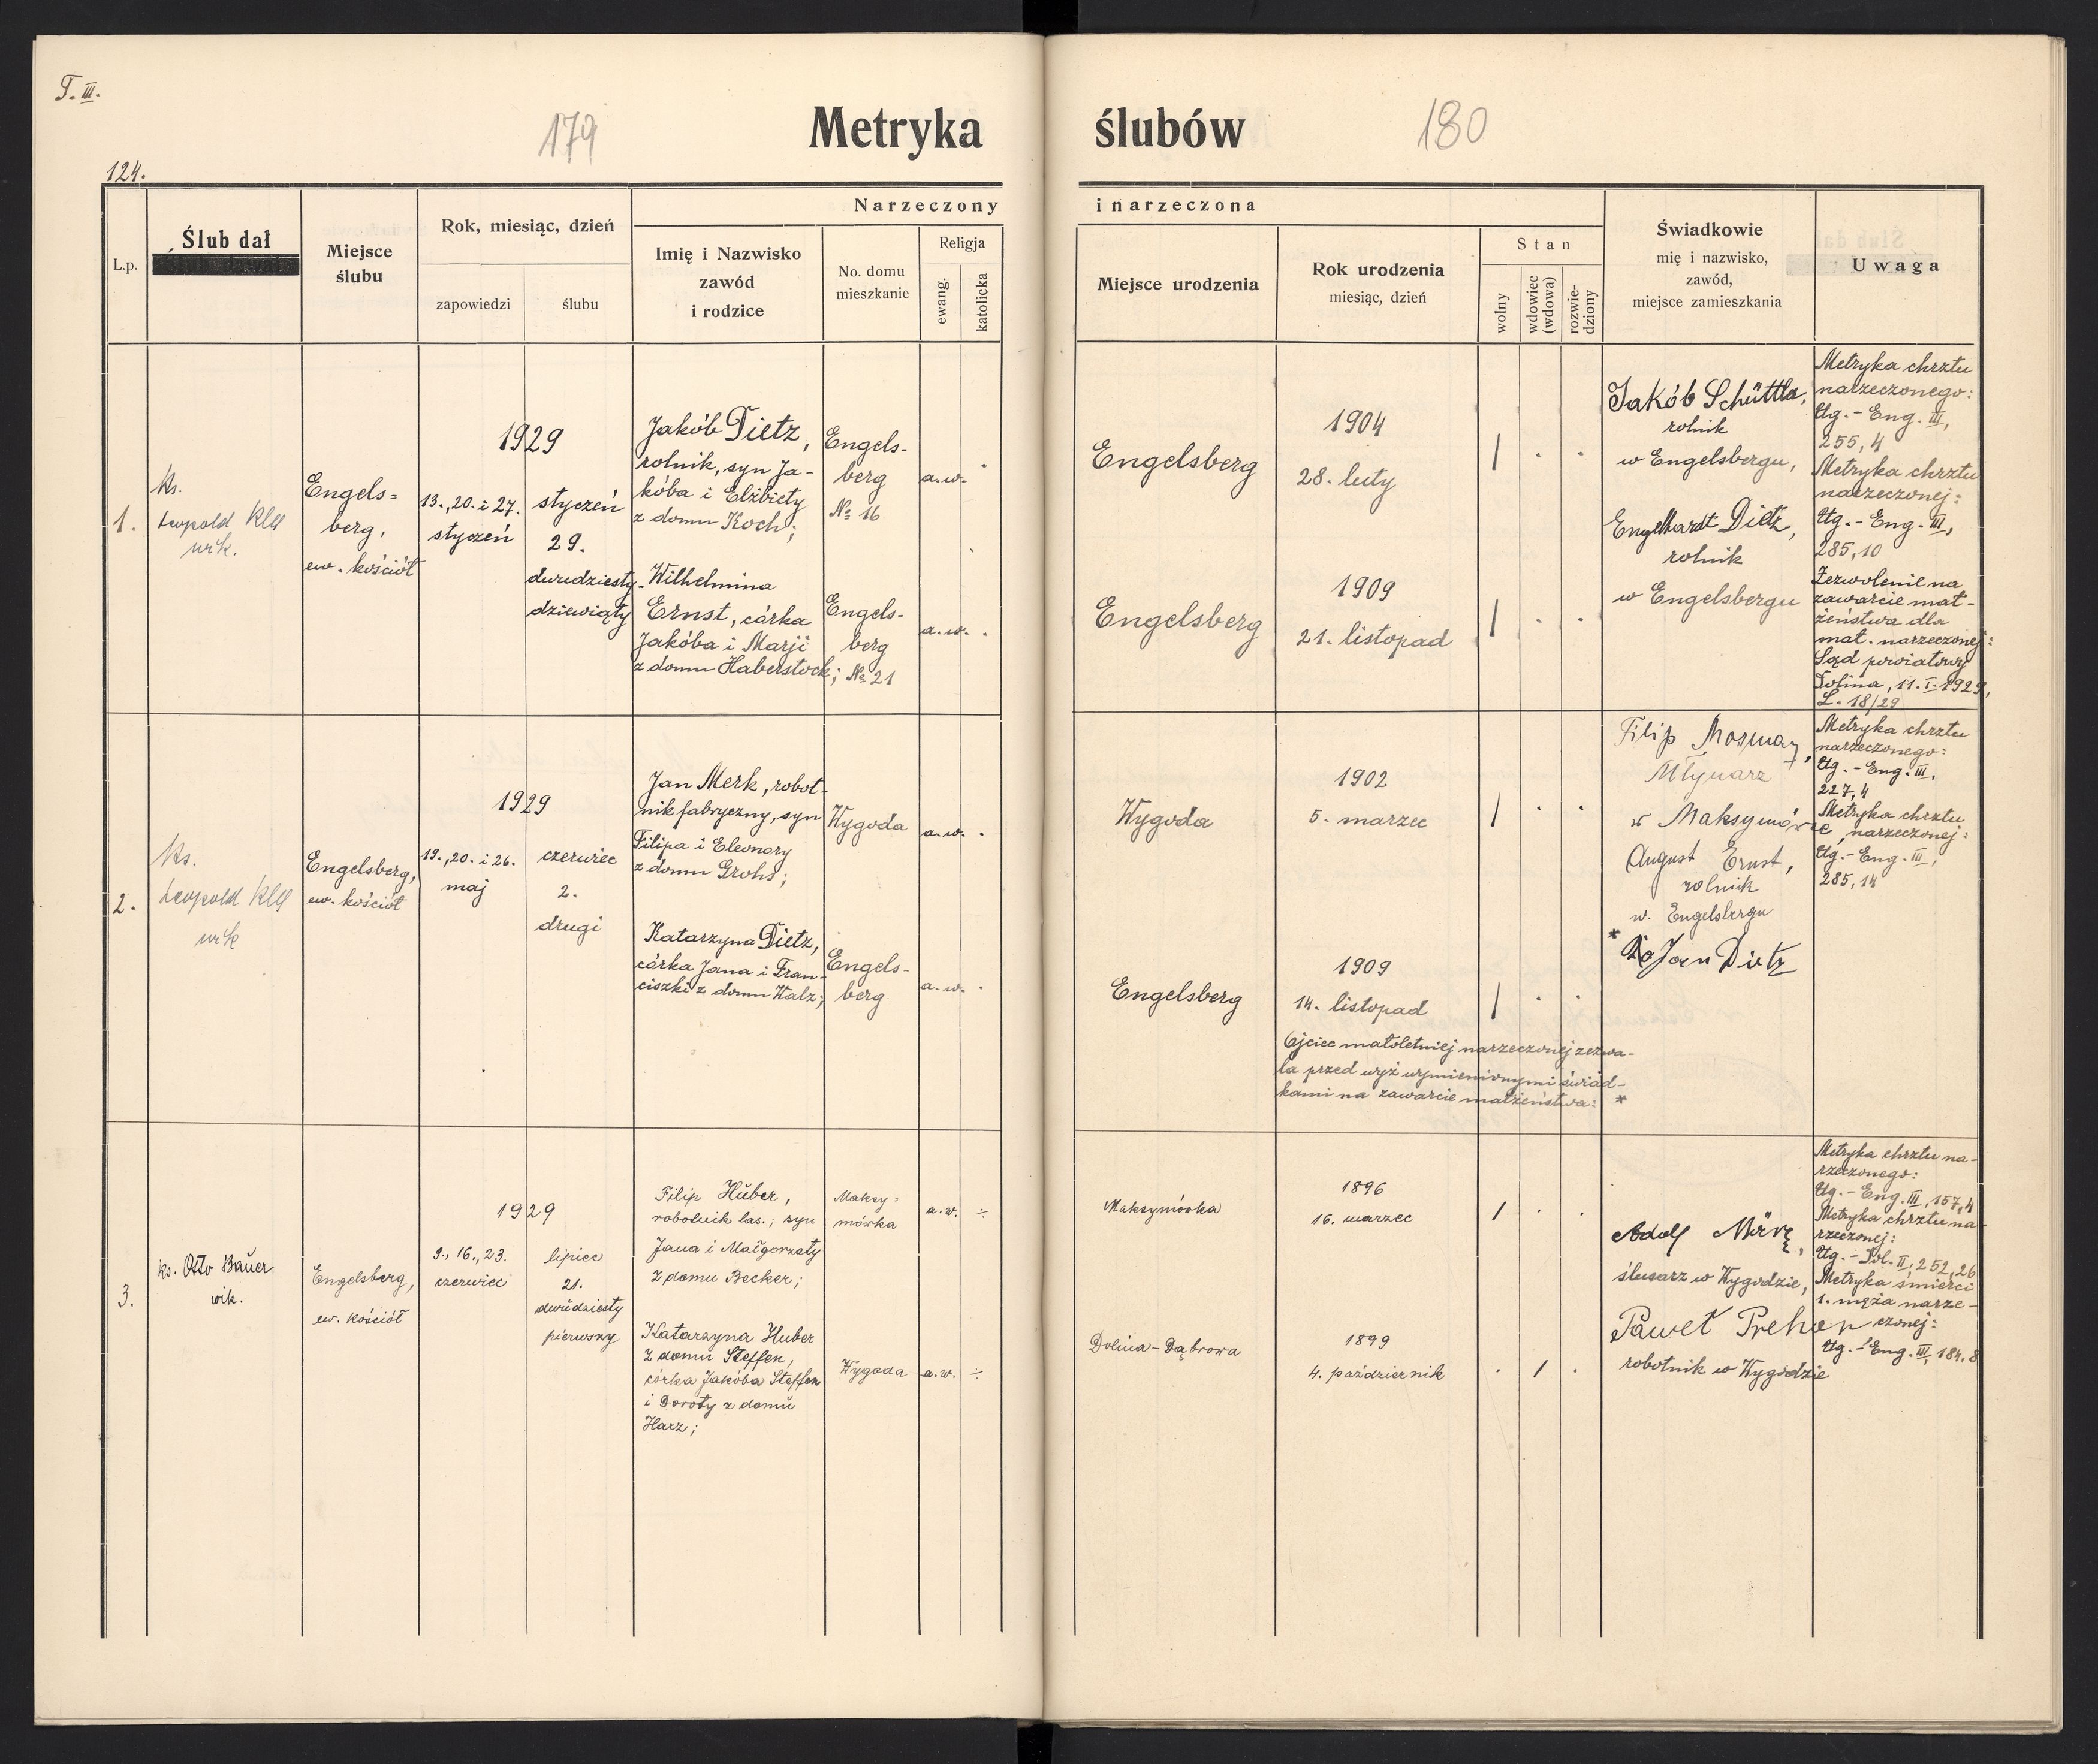 T. III.
179
Metryka
ślubów
180
124.
L.p.
Ślub dał
Miejsce
ślubu
Rok, miesiąc, dzień
zapowiedzi
ślubu
Narzeczony
Imię i Nazwisko
zawód
i rodzice
No. domu
mieszkanie
Religja
ewang.
katolicka
i narzeczona
Miejsce urodzenia
Rok urodzenia
miesiąc, dzień
Stan
wolny
wdowiec
(wdowa)
rozwie-
dziony
Świadkowie
mię i nazwisko,
zawód,
miejsce zamieszkania
Uwaga
1.
ks.
Leopold
wik.
Engels=
berg,
ew. kościół
1929
13., 20. i 27.
styczeń
styczeń
29.
dwudziesty-
dziewiąty
Jakób Dietz,
rolnik, syn Ja-
kóba i Elżbiety
z domu Koch;
Engels-
berg
№ 16
a.w.
Wilhelmina
Ernst, córka
Jakóba i Marji
z domu Haberstock;
Engels-
berg
№ 21
a.w.
Engelsberg
1904
28. luty
Engelsberg
1909
21. listopad
Jakób Schüttla,
rolnik
w Engelsbergu,
Engelhardt Dietz,
rolnik
w Engelsbergu
Metryka chrztu
narzeczonego:
Ug. - Eng. III,
255, 4
Metryka chrztu
narzeczonej:
Ug. - Eng. III,
285, 10
Zezwolenie na
zawarcie mał-
żeństwa dla
mał. narzeczonej:
Sąd powiatowy
Dolina, 11. I. 1929,
L. 18/29
2.
ks.
Leopold
wik
Engelsberg,
ew. kościół
1929
19., 20. i 26.
maj
czerwiec
2.
drugi
Jan Merk, robot-
nik fabryczny, syn
Filipa i Eleonory
z domu Grohs;
Wygoda
a.w.
Katarzyna Dietz,
córka Jana i Fran-
ciszki z domu Walz;
Engels-
berg
a.w.
Wygoda
1902
5. marzec
Engelsberg
1909
14. listopad
Ojciec małoletniej narzeczonej zezwa-
la przed wyż wymienionymi świad-
kami na zawarcie małżeństwa: *
Filip Mosmay,
Młynarz
w Maksymówce,
August Ernst,
rolnik
w. Engelsbergu
* Jan Dietz
Metryka chrztu
narzeczonego:
Ug. - Eng. III,
227, 4
Metryka chrztu
narzeczonej:
Ug. - Eng. III,
285, 14
3.
ks. Otto Bauer
wik.
Engelsberg,
ew. kościół
1929
9., 16., 23.
czerwiec
lipiec
21.
dwudziesty
pierwszy
Filip Huber,
robotnik las.; syn
Jana i Małgorzaty
z domu Becker;
Maksy=
mówka
a.w.
Katarzyna Huber
z domu Steffen,
córka Jakóba Steffen
i Doroty z domu
Harz;
Wygoda
a.w.
Maksymówka
1896
16. marzec
Dolina - Dąbrowa
1899
4. październik
Adolf
ślusarz w Wygodzie,
Paweł Prehon
robotnik w Wygodzie
Metryka chrztu na-
rzeczonego:
Ug. - Eng. III, 157, 4
Metryka chrztu na-
rzeczonej:
Ug. - Dol. II, 252, 26
Metryka śmierci
1. męża narze-
czonej:
Ug. - Eng. III, 184, 8